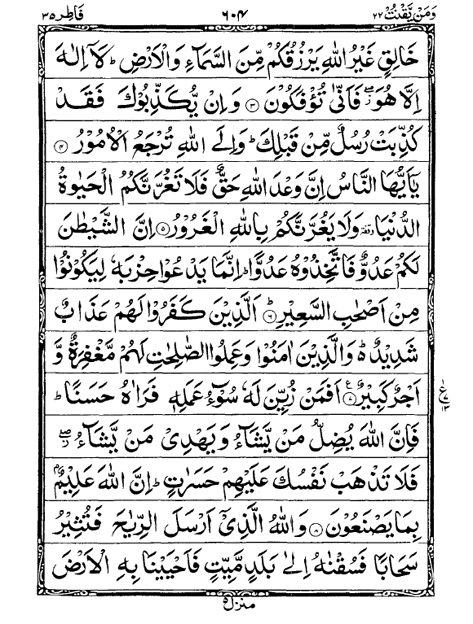 وَمَنْ يَّقْنُتْ ٢٢ ٦٠٤ فَاطِر ٣٥
خَالِقٍ غَيْرُ اللّٰهِ يَرْزُقُكُمْ مِّنَ السَّمَآءِ وَالْاَرْضِ ؕ لَآ اِلٰهَ
اِلَّا هُوَ ۖ فَاَنّٰى تُؤْفَكُوْنَ ﴿۳﴾ وَاِنْ يُّكَذِّبُوْكَ فَقَدْ
كُذِّبَتْ رُسُلٌ مِّنْ قَبْلِكَ ؕ وَاِلَى اللّٰهِ تُرْجَعُ الْاُمُوْرُ ﴿۴﴾
يٰۤاَيُّهَا النَّاسُ اِنَّ وَعْدَ اللّٰهِ حَقٌّ فَلَا تَغُرَّنَّكُمُ الْحَيٰوةُ
الدُّنْيَا ۥ وَلَا يَغُرَّنَّكُمْ بِاللّٰهِ الْغَرُوْرُ ﴿۵﴾ اِنَّ الشَّيْطٰنَ
لَكُمْ عَدُوٌّ فَاتَّخِذُوْهُ عَدُوًّا ؕ اِنَّمَا يَدْعُوْا حِزْبَهٗ لِيَكُوْنُوْا
مِنْ اَصْحٰبِ السَّعِيْرِ ؕ ﴿۶﴾ اَلَّذِيْنَ كَفَرُوْا لَهُمْ عَذَابٌ
شَدِيْدٌ ۬ؕ وَالَّذِيْنَ اٰمَنُوْا وَعَمِلُوا الصّٰلِحٰتِ لَهُمْ مَّغْفِرَةٌ وَّ
اَجْرٌ كَبِيْرٌ ﴿۷﴾ اَفَمَنْ زُيِّنَ لَهٗ سُوْٓءُ عَمَلِهٖ فَرَاٰهُ حَسَنًا ؕ
فَاِنَّ اللّٰهَ يُضِلُّ مَنْ يَّشَآءُ وَيَهْدِيْ مَنْ يَّشَآءُ ۖ
فَلَا تَذْهَبْ نَفْسُكَ عَلَيْهِمْ حَسَرٰتٍ ؕ اِنَّ اللّٰهَ عَلِيْمٌۢ
بِمَا يَصْنَعُوْنَ ﴿۸﴾ وَاللّٰهُ الَّذِيْۤ اَرْسَلَ الرِّيٰحَ فَتُثِيْرُ
سَحَابًا فَسُقْنٰهُ اِلٰى بَلَدٍ مَّيِّتٍ فَاَحْيَيْنَا بِهِ الْاَرْضَ
منزل ۵